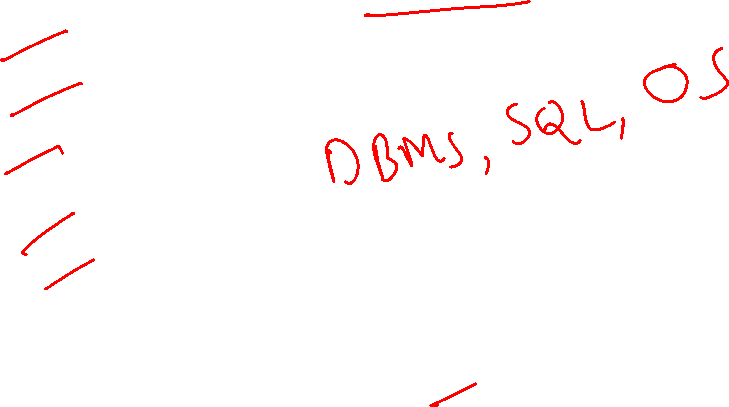 DBMS, SQL, OS